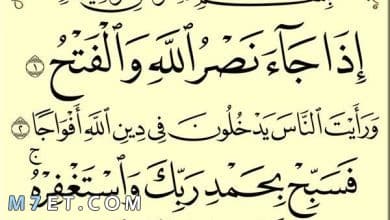 إِذَا جَآءَ نَصۡرُ ٱللَّهِ وَٱلۡفَتۡحُ ١
وَرَأَيۡتَ ٱلنَّاسَ يَدۡخُلُونَ فِي دِينِ ٱللَّهِ أَفۡوَاجٗا ٢
فَسَبِّحۡ بِحَمۡدِ رَبِّكَ وَٱسۡتَغۡفِرۡهُۚ
M7ET.COM